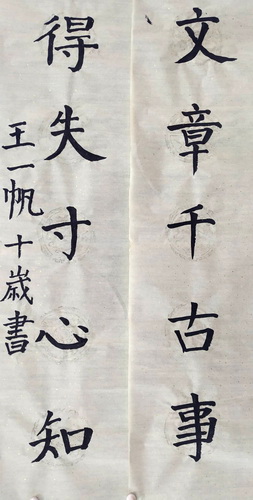 文章千古事
得失寸心知
王一帆十歳書